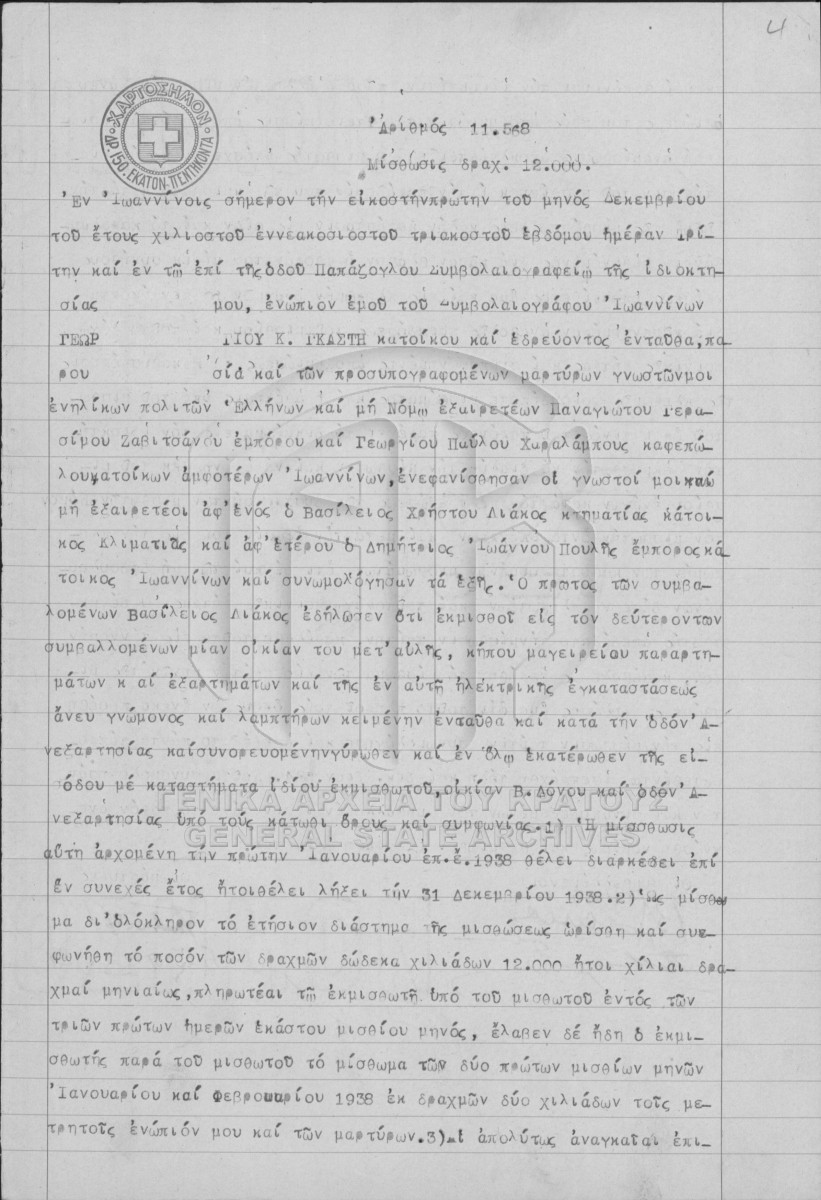 4
ΧΑΡΤΟΣΗΜΟΝ
ΔΡ. 150. ΕΚΑΤΟΝ-ΠΕΝΤΗΚΟΝΤΑ
Ἀριθμός 11.568
Μίσθωσις δραχ. 12.000.
Ἐν Ἰωαννίνοις σήμερον τήν εἰκοστήνπρώτην τοῦ μηνός Δεκεμβρίου
τοῦ ἔτους χιλιοστοῦ ἐννεακοσιοστοῦ τριακοστοῦ ἑβδόμου ἡμέραν Τρί-
την καί ἐν τῷ ἐπί τῆς ὁδοῦ Παπάζογλου Συμβολαιογραφείῳ τῆς ἰδιοκτη-
σίας μου, ἐνώπιον ἐμοῦ τοῦ Συμβολαιογράφου Ἰωαννίνων
ΓΕΩΡ ΓΙΟΥ Κ. ΓΚΑΣΤΗ κατοίκου καί ἑδρεύοντος ἐνταῦθα,πα-
ρου σίᾳ καί τῶν προσυπογραφομένων μαρτύρων γνωστῶνμοι
ἐνηλίκων πολιτῶν Ἑλλήνων καί μή Νόμῳ ἐξαιρετέων Παναγιώτου Γερα-
σίμου Ζαβιτσάνου ἐμπόρου καί Γεωργίου Παύλου Χαραλάμπους καφεπώ-
λουκατοίκων ἀμφοτέρων Ἰωαννίνων,ἐνεφανίσθησαν οἱ γνωστοί μοι καί
μή ἐξαιρετέοι ἀφ'ἑνός ὁ Βασίλειος Χρήστου Λιάκος κτηματίας κάτοι-
κος Κλιματιᾶς καί ἀφ'ἑτέρου ὁ Δημήτριος Ἰωάννου Πουλῆς ἔμποροςκά-
τοικος Ἰωαννίνων καί συνωμολόγησαν τά ἑξῆς. Ὁ πρῶτος τῶν συμβα-
λομένων Βασίλειος Λιάκος ἐδήλωσεν ὅτι ἐκμισθοῖ εἰς τόν δεύτεροντων
συμβαλλομένων μίαν οἰκίαν του μετ'αὐλῆς, κήπου μαγειρείου παραρτη-
μάτων κ αί ἐξαρτημάτων καί τῆς ἐν αὐτῇ ἠλεκτρικῆς ἐγκαταστάσεως
ἄνευ γνώμονος καί λαμπτήρων κειμένην ἐνταῦθα καί κατά τήν ὁδόν Ἀ-
νεξαρτησίας καίσυνορευομένηνγύρωθεν καί ἐν ὅλῳ ἑκατέρωθεν τῆς εἰ-
σόδου μέ καταστήματα ἰδίου ἐκμισθωτοῦ,οἰκίαν Β. Δόνου καί ὁδόν Ἀ-
νεξαρτησίας ὑπό τούς κάτωθι ὅρους καί συμφωνίας.1) Ἡ μίσσθωσις
αὕτη ἀρχομένη τήν πρώτην Ἰανουαρίου ἐπ.ἔ.1938 θέλει διαρκέσει ἐπί
ἕν συνεχές ἔτος ἤτοιθέλει λήξει τήν 31 Δεκεμβρίου 1938.2) Ὡς μίσθω-
μα δι'ὁλόκληρον τό ἐτήσιον διάστημα τῆς μισθώσεως ὡρίσθη καί συνε-
φωνήθη τό ποσόν τῶν δραχμῶν δώδεκα χιλιάδων 12.000 ἤτοι χίλιαι δρα-
χμαί μηνιαίως,πληρωτέαι τῷ ἐκμισθωτῇ ὑπό τοῦ μισθωτοῦ ἐντός τῶν
τριῶν πρώτων ἡμερῶν ἑκάστου μισθίου μηνός, ἔλαβεν δέ ἤδη ὁ ἐκμι-
σθωτής παρά τοῦ μισθωτοῦ τό μίσθωμα τῶν δύο πρώτων μισθίων μηνῶν
Ἰανουαρίου καί Φεβρουαρίου 1938 ἐκ δραχμῶν δύο χιλιάδων τοῖς με-
τρητοῖς ἐνώπιόν μου καί τῶν μαρτύρων.3)Αἱ ἀπολύτως ἀναγκαῖαι ἐπι-
ΓΕΝΙΚΑ ΑΡΧΕΙΑ ΤΟΥ ΚΡΑΤΟΥΣ
GENERAL STATE ARCHIVES